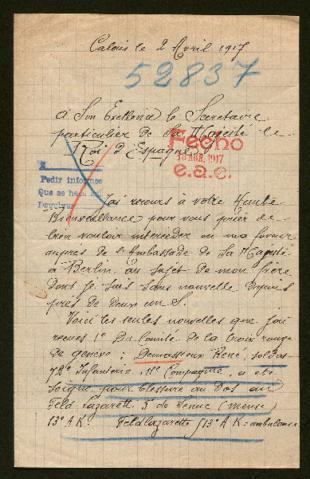 Calais le 2 Avril 1917
52837
à Son Excellence le Secretaire
particulier de Sa Majesté le
Roi d'Espagne
Fecho
18 ABR. 1917
e.a.c.
A
Pedir informes
Que se ha
J'ai recours à votre Haute
Bienveillance pour vous prier de
bien vouloir intercéder en ma faveur
auprès de l'Ambassade de Sa Majesté
à Berlin au sujet de mon frère
dont je suis sans nouvelle depuis
près de deux an s.
Voici les seules nouvelles que j'ai
recues 1° Du Comité de la Croix rouge
de genève : René, soldat
Infanterie, 11e Compagnie, a été
soigné pour blessure au Dos au
Feld Lazarett 3 de (Meuse)
13° A.K. Feldlazarette /13° A.K = ambulance